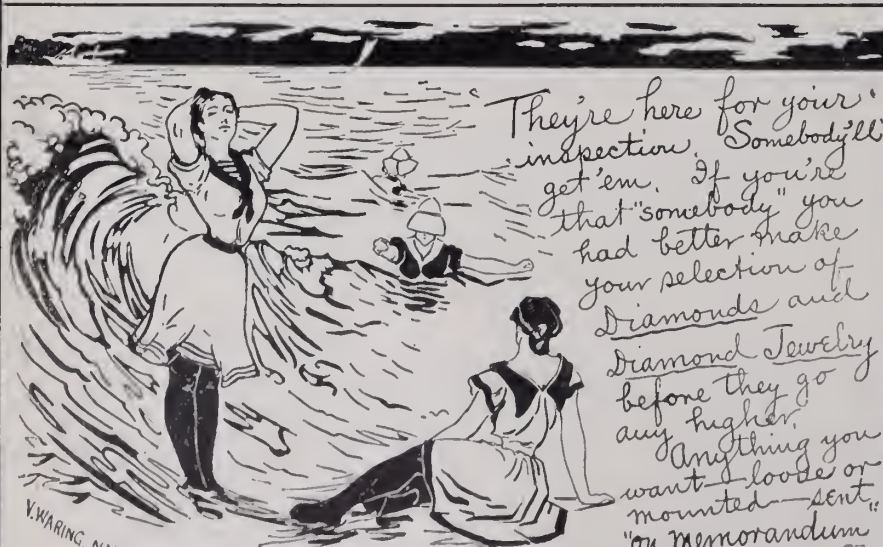 They're here for your
inspection. Somebody'll
get 'em. If you're
that "somebody" you
had better make
your selection of
Diamonds and
Diamond Jewelry
before they go
any higher.
Anything you
want—loose or
mounted—sent
"on memorandum"
V. WARING